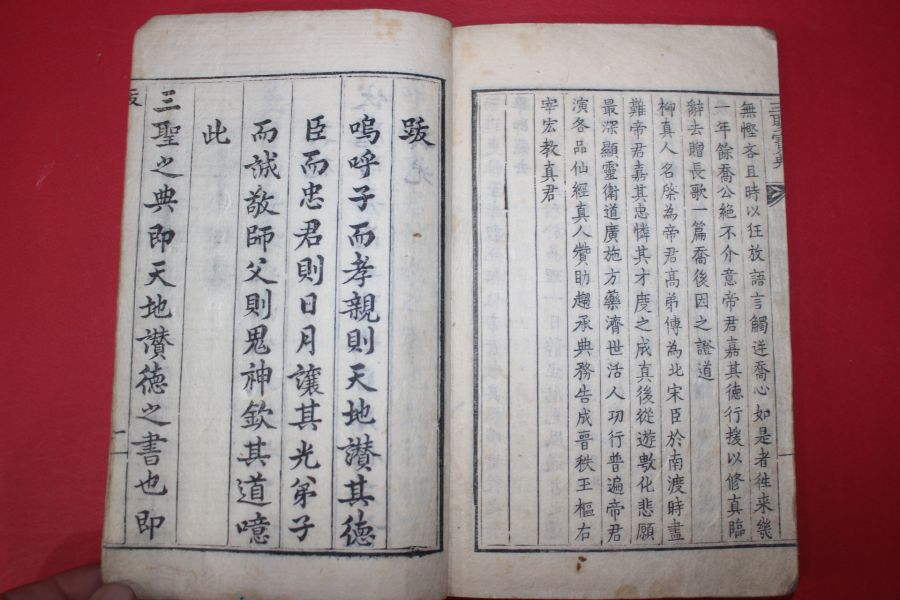 三聖寶典
無慳吝且時以狂放語言觸逆喬心如是者徃来幾
一年餘喬公絶不介意帝君嘉其德行援以修真臨
辭去贈長歌一篇喬後因之證道
柳真人名棨為帝君高弟傅為北宋臣於南渡時盡
難帝君嘉其忠憐其才度之成真後從遊敷化悲願
最深顯靈衛道廣施方藥濟世活人功行普遍帝君
演各品仙經真人贊助趨承典務告成晉秩玉樞右
宰宏教真君
跋
嗚呼子而孝親則天地讃其德
臣而忠君則日月讓其光弟子
而誠敬師父則鬼神欽其道噫
此
三聖之典即天地讃德之書也即
跋
一